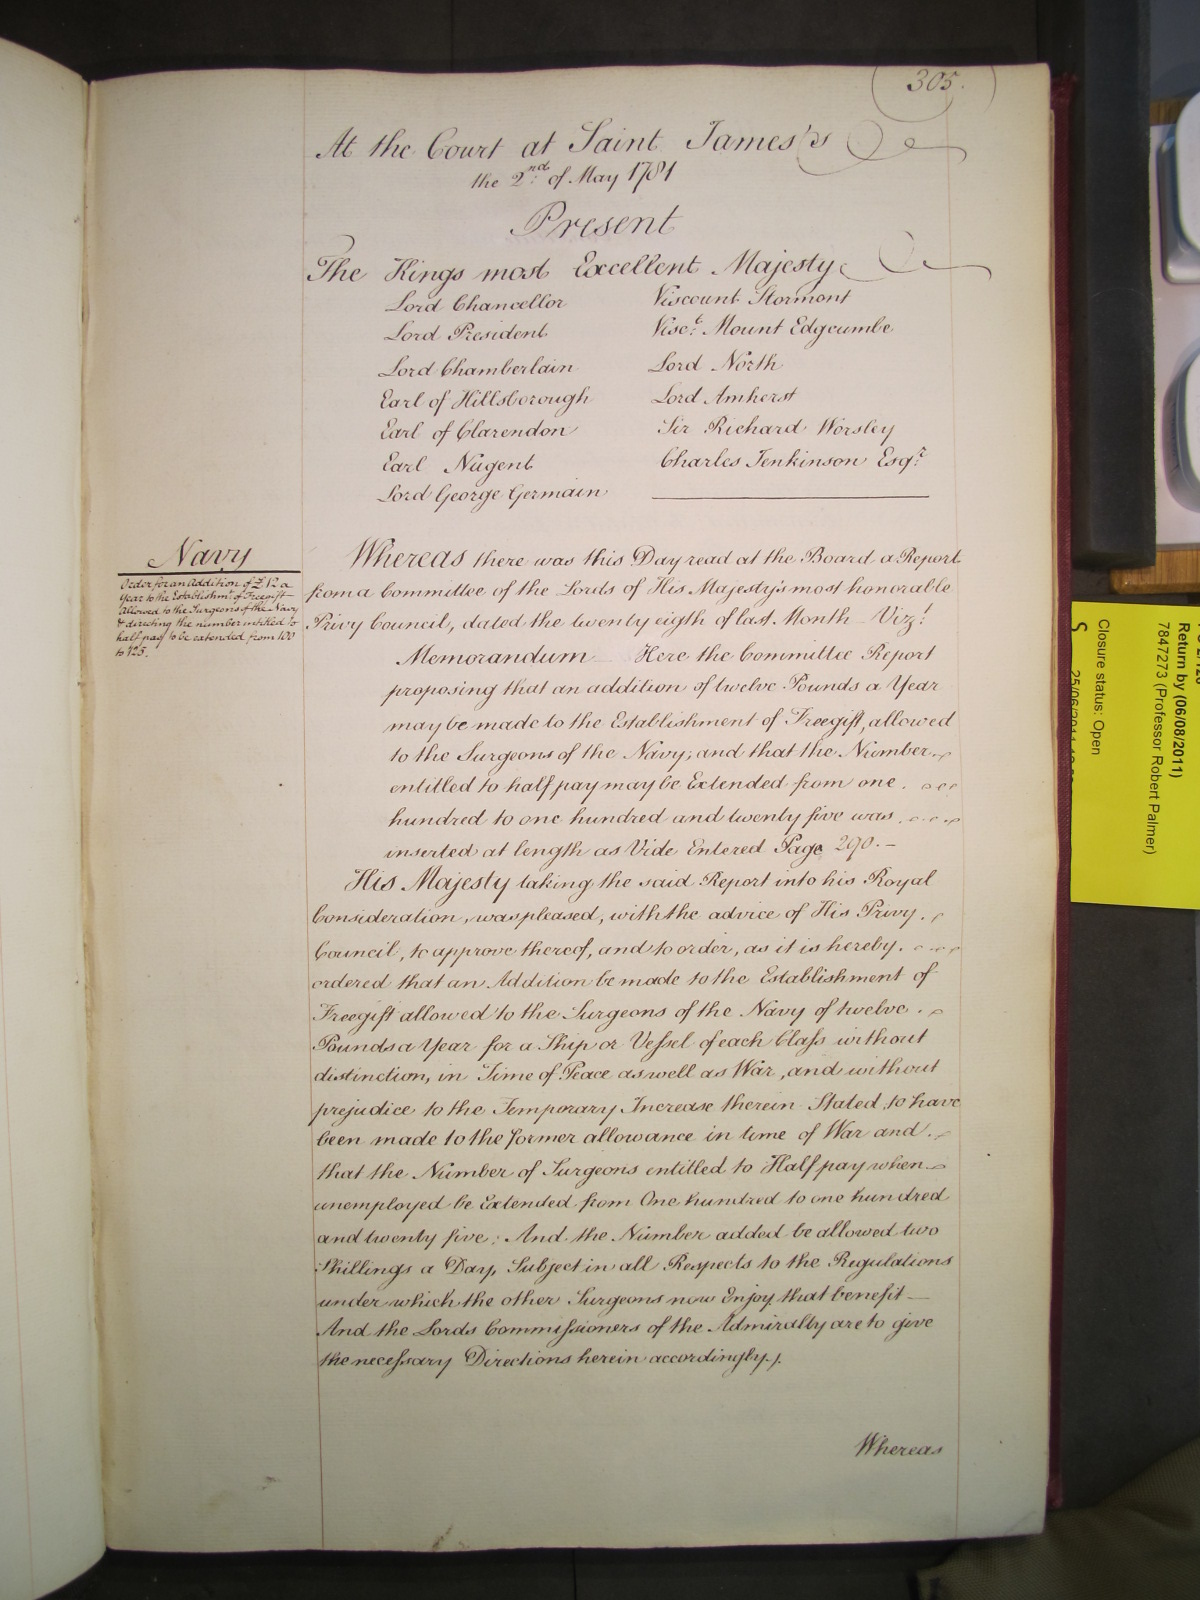 305.
At the Court at Saint James's
the 2nd. of May 1781
Present
The Kings most Excellent Majesty
Lord Chancellor
Lord President
Lord Chamberlain
Earl of Hillsborough
Earl of Clarendon
Earl Nugent
Lord George Germain
Viscount Stormont
Visct. Mount Edgcumbe
Lord North
Lord Amherst
Sir Richard Worsley
Charles Jenkinson Esqr.
Navy
Order for an Addition of £12 a
Year to the Establishmt. of Freegift
Allowed to the Surgeons of the Navy
& directing the number entitled to
half pay to be extended from 100
to 125.
Whereas there was this Day read at the Board a Report
from a Committee of the Lords of His Majesty's most honorable
Privy Council, dated the twenty eigth of last Month – Vizt.
Memorandum Here the Committee Report
proposing that an addition of twelve Pounds a Year
may be made to the Establishment of Freegift, allowed
to the Surgeons of the Navy; and that the Number
entitled to half pay may be Extended from one
hundred to one hundred and twenty five was
inserted at length as Vide Entered Page 290. –
His Majesty taking the said Report into his Royal
Consideration, was pleased, with the advice of His Privy
Council, to approve thereof, and to order, as it is hereby
ordered that an Addition be made to the Establishment of
Freegift allowed to the Surgeons of the Navy of twelve
Pounds a Year for a Ship or Vessel of each Class without
distinction, in Time of Peace as well as War, and without
prejudice to the Temporary Increase therein Stated to have
been made to the former allowance in time of War and
that the Number of Surgeons entitled to Half pay when
unemployed be Extended from One hundred to one hundred
and twenty five; And the Number added be allowed two
Shillings a Day, Subject in all Respects to the Regulations
under which the other Surgeons now Enjoy that benefit –
And the Lords Commissioners of the Admiralty are to give
the necessary Directions herein accordingly.
Whereas
Return by (06/08/2011)
7847273 (Professor Robert Palmer)
Closure status: Open